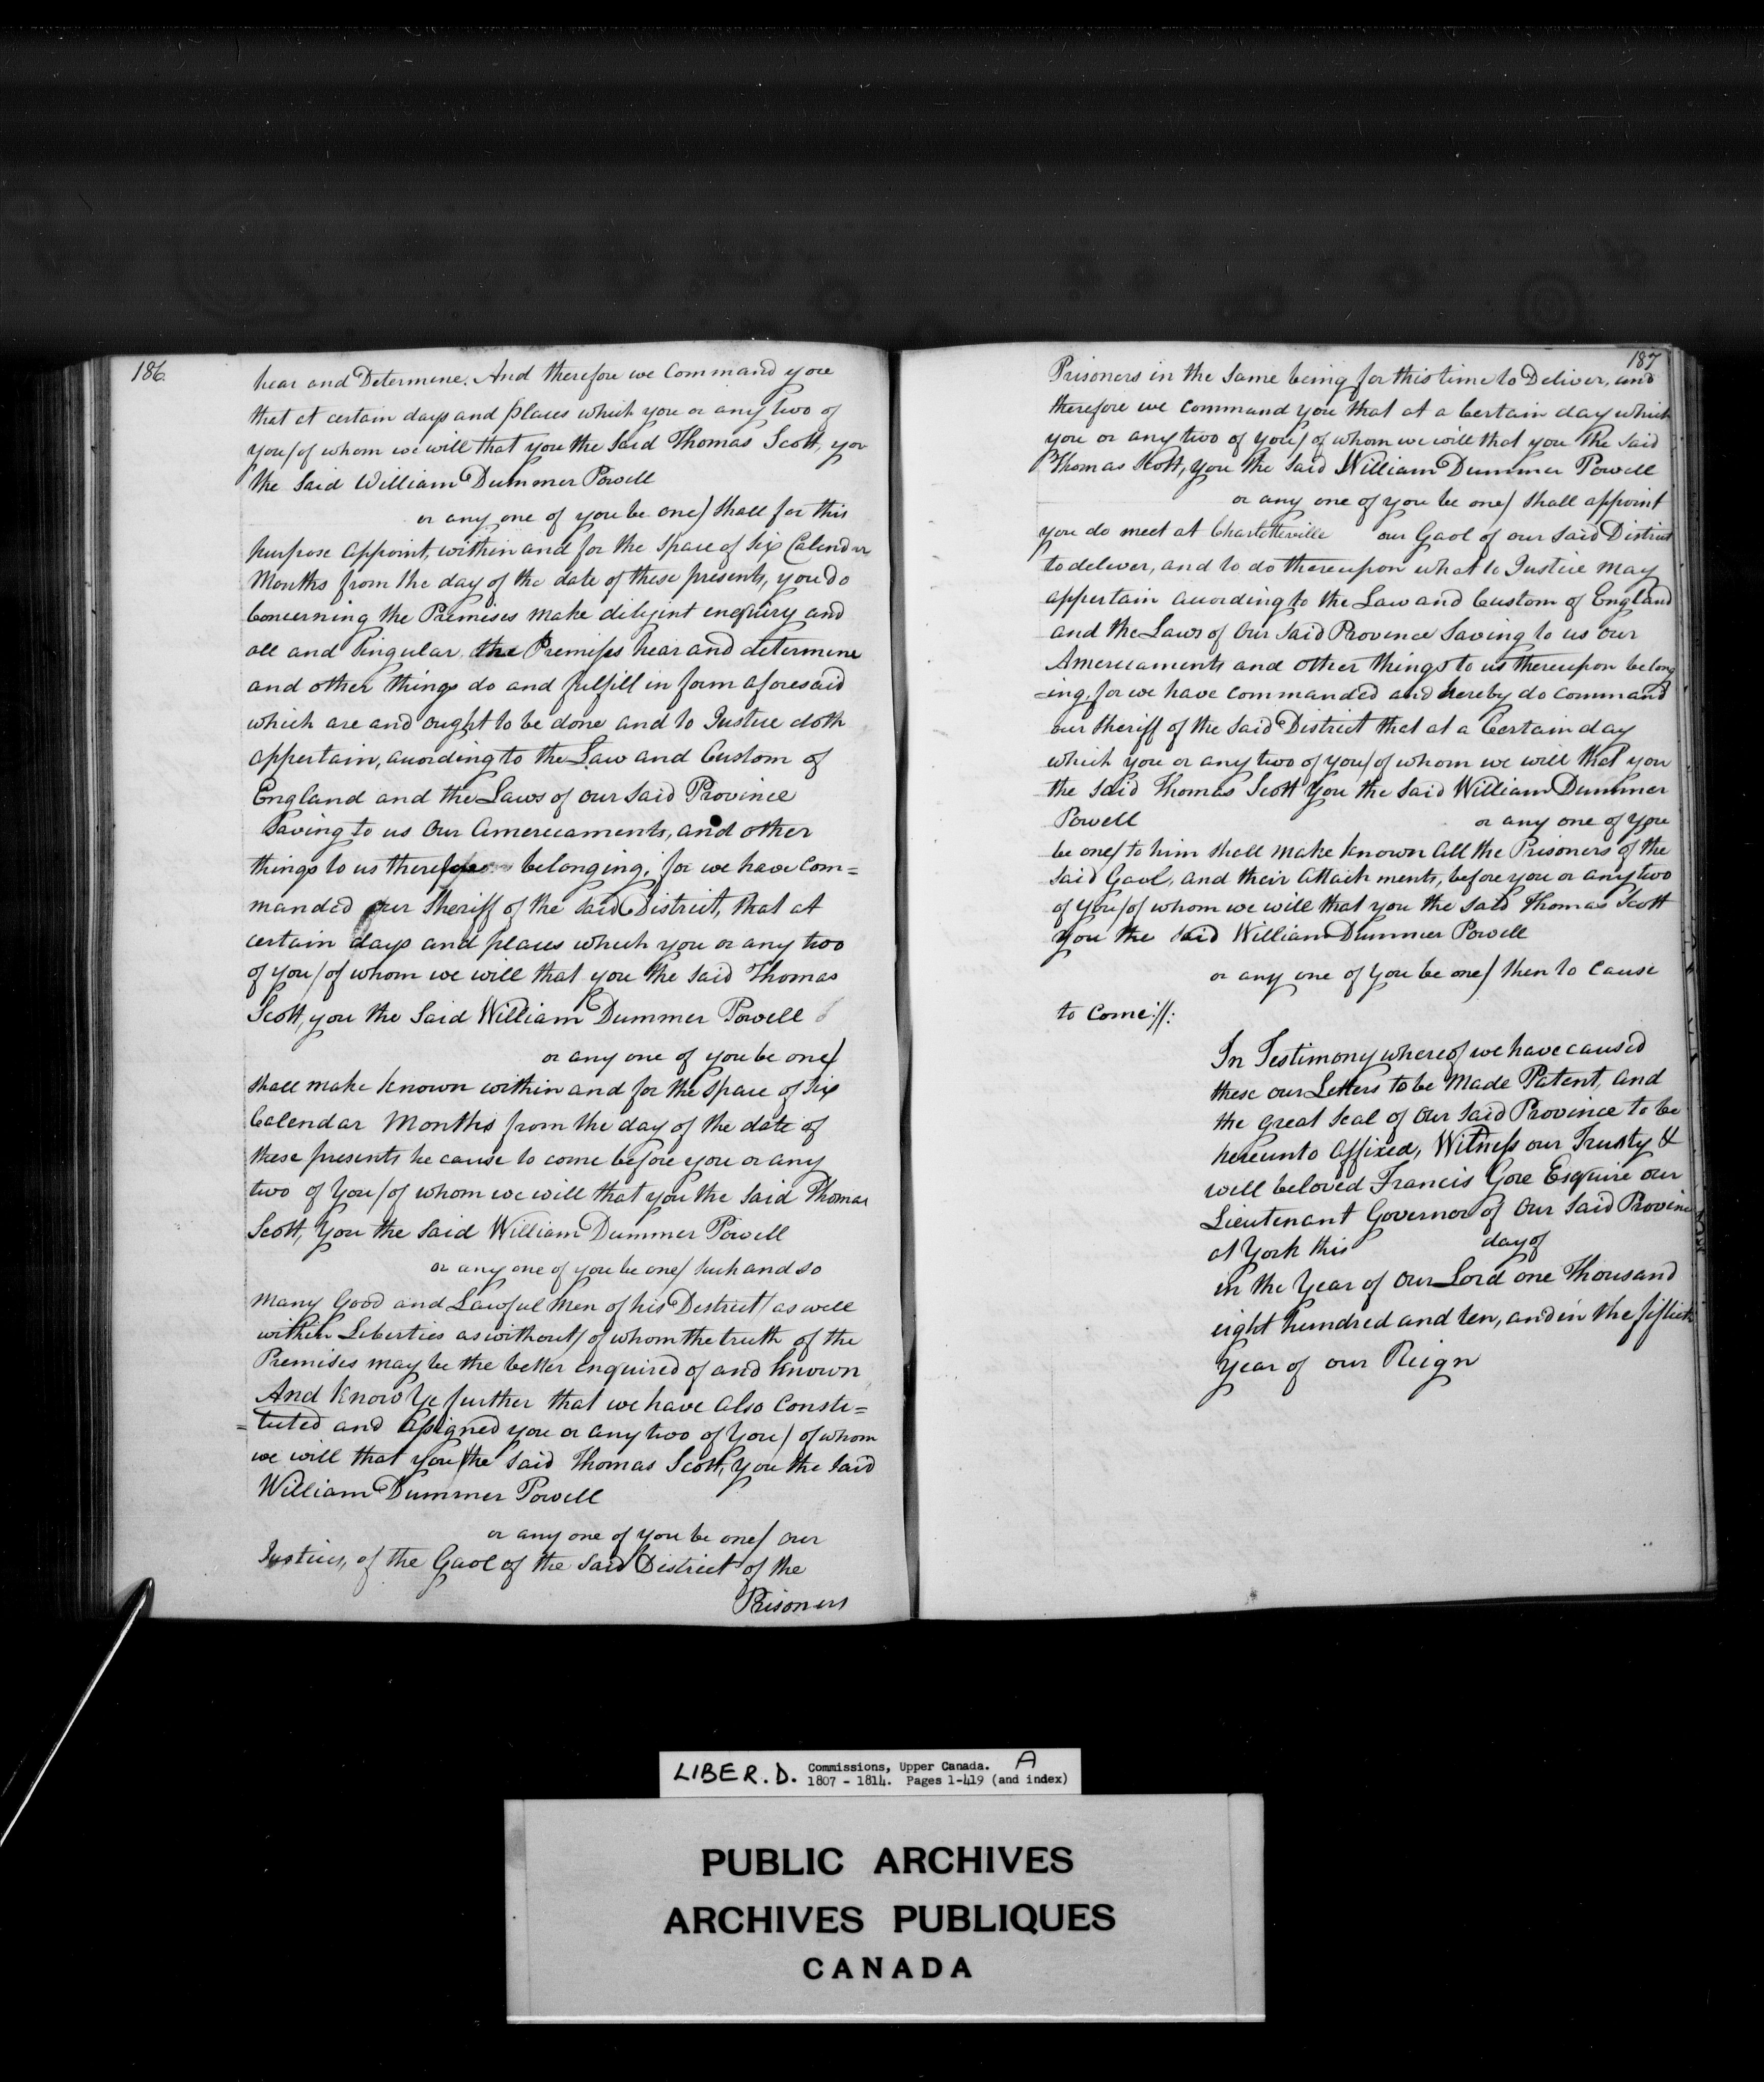 186.
hear and Determine. And therefore we Command you
that at certain days and places which you or any two of
you/ of whom we will that you the Said Thomas Scott, you
the Said William Dummer Powell
or any one of you be one/ shall for this
purpose appoint, within and for the space of Six Calendar
Months from the day of the date of these presents, you do
Concerning the Premises make diligint enquiry and
all and Singular the Premises hear and determine
and other things do and fulfill in form aforesaid
which are and ought to be done and to Justice doth
appertain, according to the Law and Custom of
England and the Laws of our Said Province
Saving to us Our Amerceaments, and other
things to us belonging, for we have Com=
manded our Sheriff of the said District, that at
certain days and places which you or any two
of you/ of whom we will that you the said Thomas
Scott, you the Said William Dummer Powell
or any one of you be one/
shall make known within and for the space of Six
Calendar Months from the day of the date of
these presents he cause to come before you or any
two of You/ of whom we will that you the Said Thomas
Scott, You the Said William Dummer Powell
or any one of you be one/ Such and so
many Good and Lawful Men of his District/ as well
within Liberties as without/ of whom the truth of the
Premises may be the better enquired of and known
And Know Ye further that we have also Consti=
=tuted and Assigned you or any two of You/ of whom
we will that you the Said Thomas Scott, You the Said
William Dummer Powell
or any one of you be one/ our
Justices, of the Gaol of the Said District of the
Prisoners
187
Prisoners in the Same being for this time to Deliver, and
therefore we Command you that at a Certain day which
you or any two of you/ of whom we will that you the Said
Thomas Scott, you the Said William Dummer Powell
or any one of you be one/ shall appoint
you do meet at Charlotteville our Gaol of our said District
to deliver, and to do thereupon what to Justice may
appertain according to the Law and Custom of England
and the Laws of Our Said Province Saving to us our
Amerceaments and other things to us thereupon belong
=ing, for we have Commanded and hereby do command
our Sheriff of the Said District that at a Certain day
which you or any two of you/ of whom we will that you
the Said Thomas Scott You the Said William Dummer
Powell or any one of you
be one/ to him shall make known All the Prisoners of the
Said Gaol, and their Attachments, before you or any two
of you/ of whom we will that you the Said Thomas Scott
You the Said William Dummer Powell
or any one of You be one/ then to Cause
to Come://:
In Testimony whereof we have caused
these our Letters to be Made Patent, and
the great Seal of Our Said Province to be
hereunto Affixed, Witness our Trusty &
well beloved Francis Gore Esquire our
Lieutenant Governor of Our Said Province
at York this day of
in the Year of Our Lord one Thousand
eight hundred and ten, and in the fiftieth
Year of our Reign
LIBER. D. Commissions, Upper Canada. A
1807 - 1814. Pages 1-419 (and index)
PUBLIC ARCHIVES
ARCHIVES PUBLIQUES
CANADA